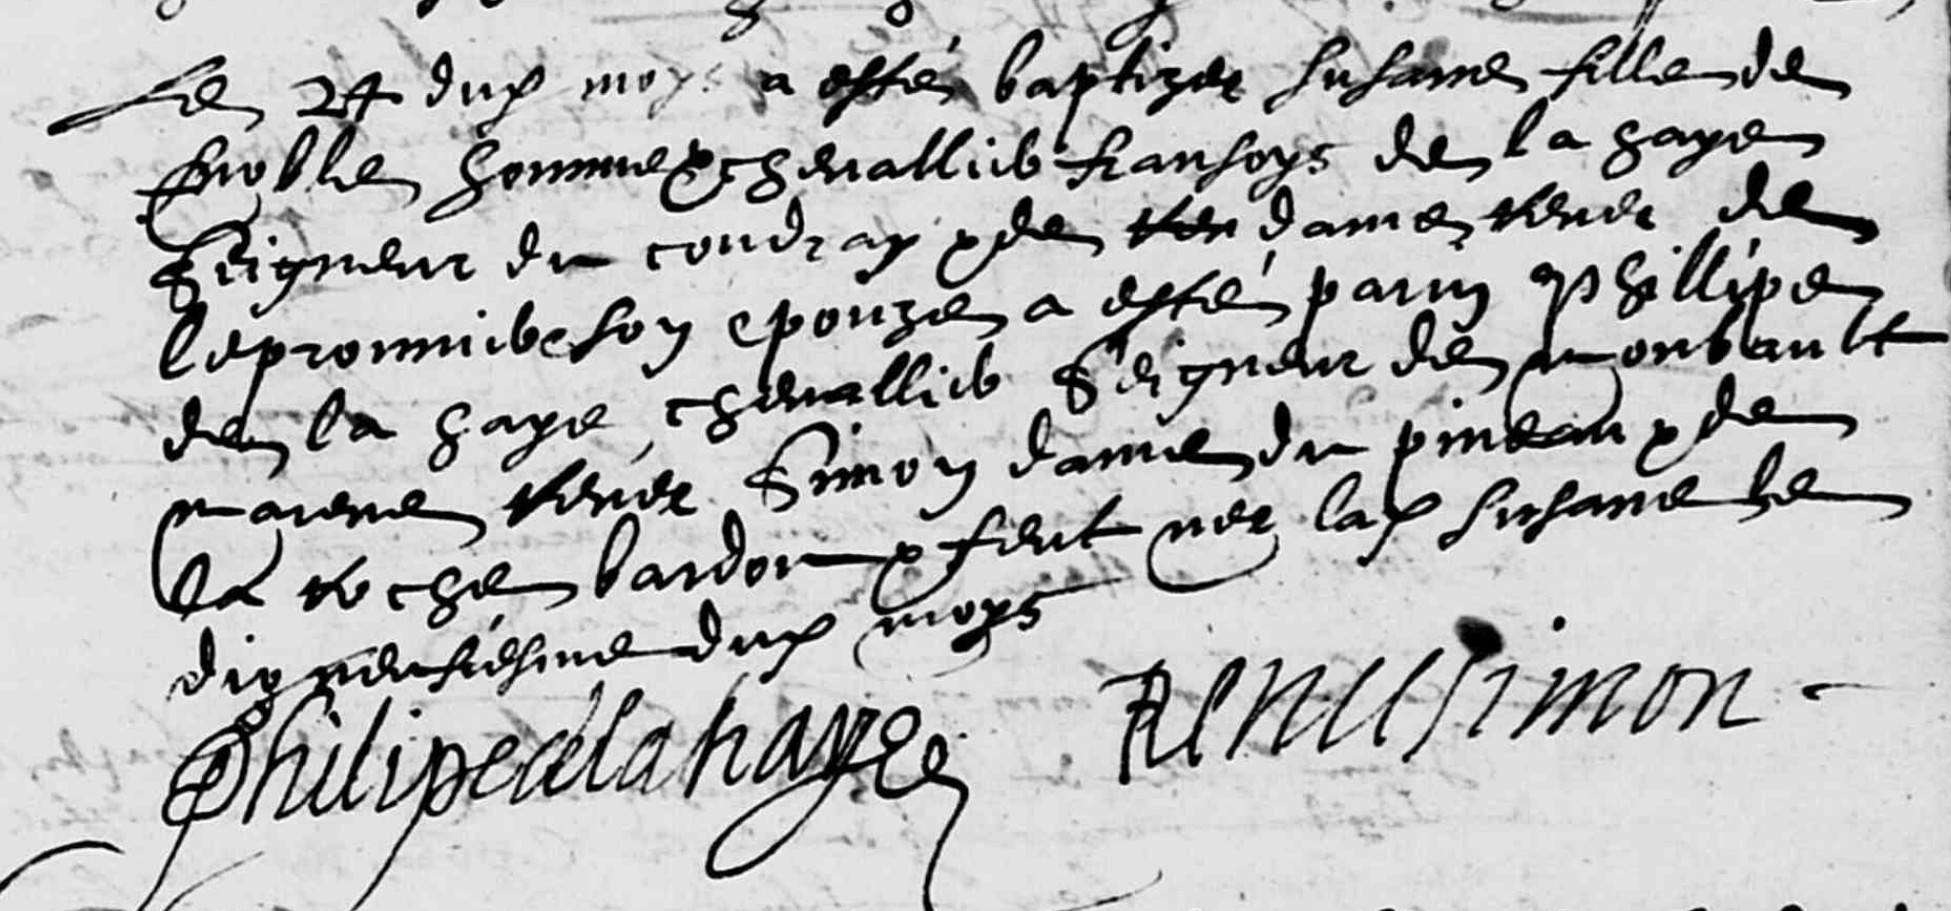 Le 24 dud moys a esté baptizee susanne fille de
noble homme & chevallier fransoys de la haye
seigneur du coudray & de dame renee de
leproumier son epouze a esté parin Phillipe
de la haye chevallier seigneur de monbault
marene renee simon dame du pineau & de
la roche bardou & feut nee lad susanne le
dix neufiesme dud moys
Philipe de la haye Renee simon